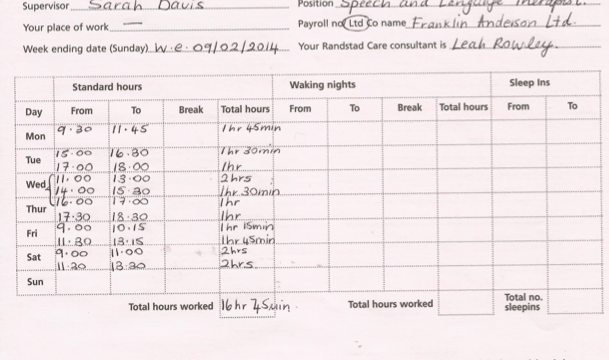 Supervisor Sarah Davis Position Speech and Language Therapist.
Your place of work — Payroll no Ltd Co name Franklin Anderson Ltd.
Week ending date (Sunday) w.e. 09/02/2014 Your Randstad Care consultant is Leah Rowley.
Standard hours Waking nights Sleep Ins
Day From To Break Total hours From To Break Total hours From To
Mon 9.30 11.45 1hr 45min
15.00 16.30 1hr 30min
Tue 17.00 18.00 1hr
11.00 13.00 2hrs
Wed 14.00 15.30 1hr 30min
16.00 17.00 1hr
Thur 17.30 18.30 1hr
Fri 9.00 10.15 1hr 15min
11.30 13.15 1hr 45min
Sat 9.00 11.00 2hrs
11.30 13.30 2hrs
Sun
Total hours worked 16hr 45min. Total hours worked Total no. sleepins